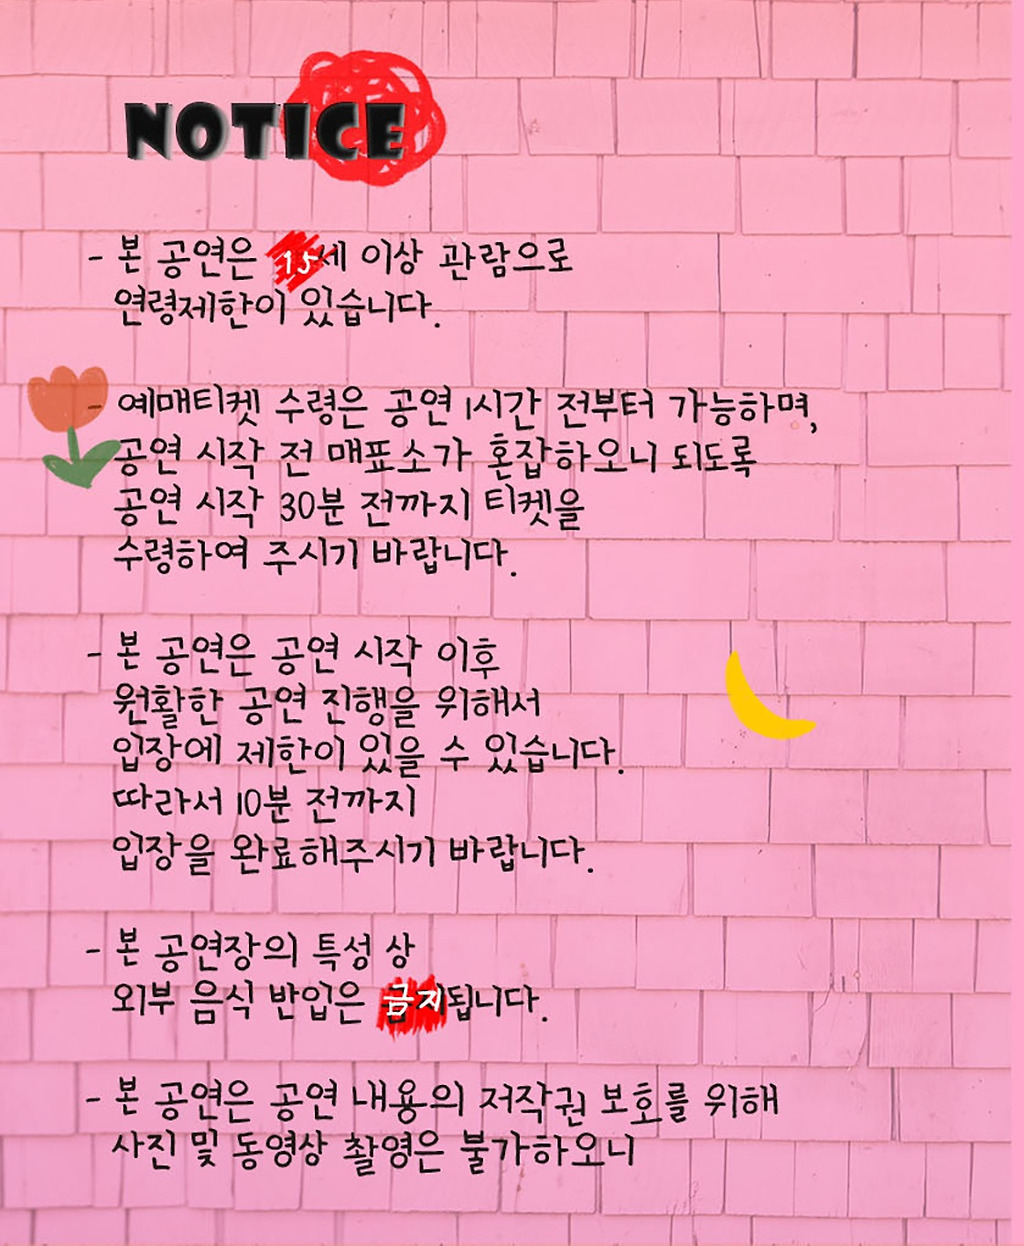 NOTICE
- 본 공연은 15세 이상 관람으로
연령제한이 있습니다.
- 예매티켓 수령은 공연 1시간 전부터 가능하며,
공연 시작 전 매표소가 혼잡하오니 되도록
공연 시작 30분 전까지 티켓을
수령하여 주시기 바랍니다.
- 본 공연은 공연 시작 이후
원활한 공연 진행을 위해서
입장에 제한이 있을 수 있습니다.
따라서 10분 전까지
입장을 완료해주시기 바랍니다.
- 본 공연장의 특성 상
외부 음식 반입은 금지됩니다.
- 본 공연은 공연 내용의 저작권 보호를 위해
사진 및 동영상 촬영은 불가하오니